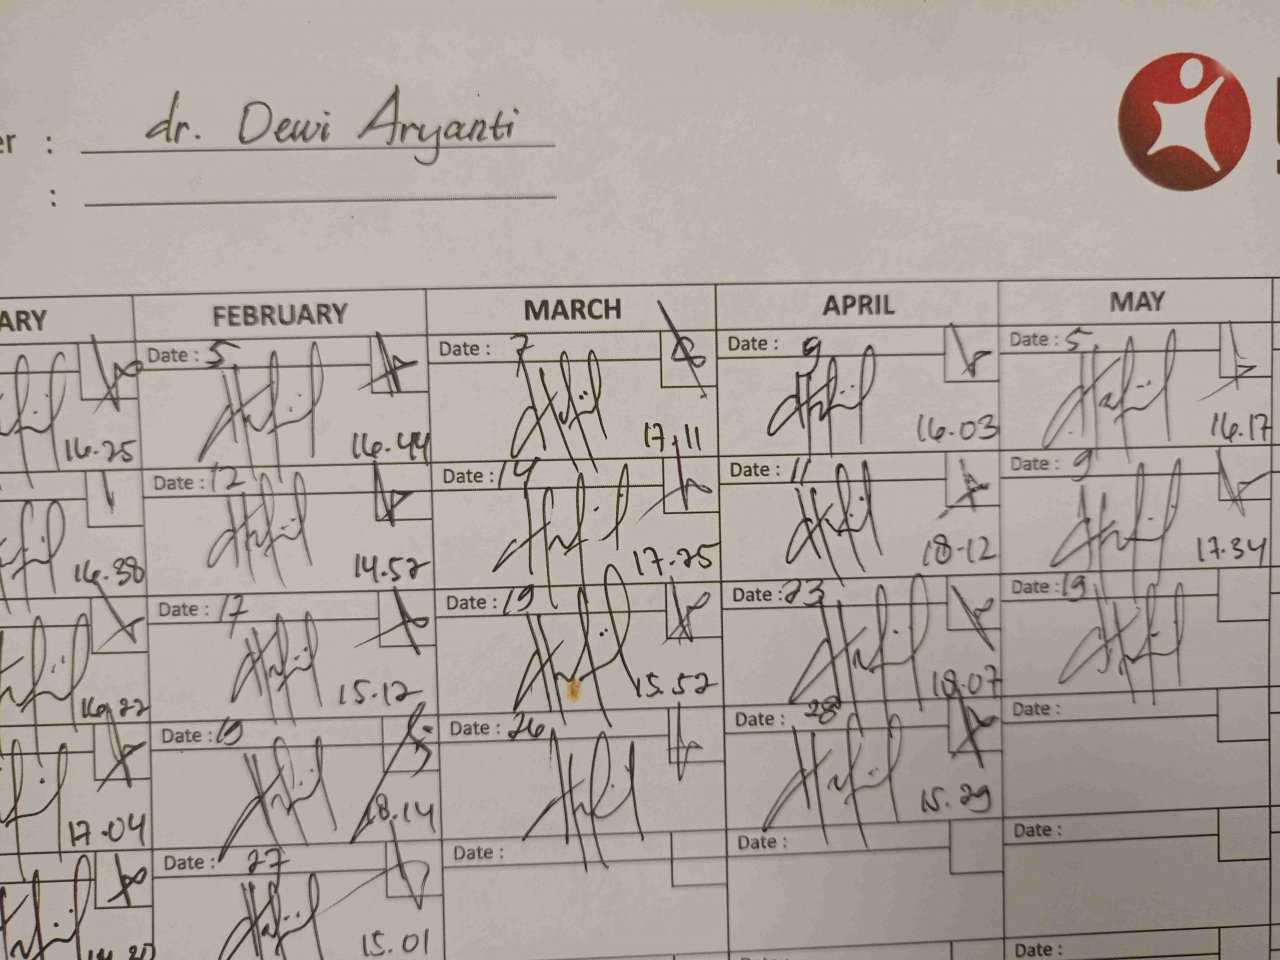 er : dr. Dewi Aryanti
:
ARY FEBRUARY MARCH APRIL MAY
Date : 5 Date : 7 Date : 9 Date : 5
16.25 16.44 17.11 16.03 16.17
Date : 12 Date : 14 Date : 11 Date : 9
16.38 14.52 17.25 18.12 17.34
Date : 17 Date : 19 Date : 23 Date : 19
16.22 15.12 15.52 18.07
Date : 19 Date : 26 Date : 28 Date :
17.04 18.14 15.29
Date : 27 Date : Date : Date :
15.01
Date :